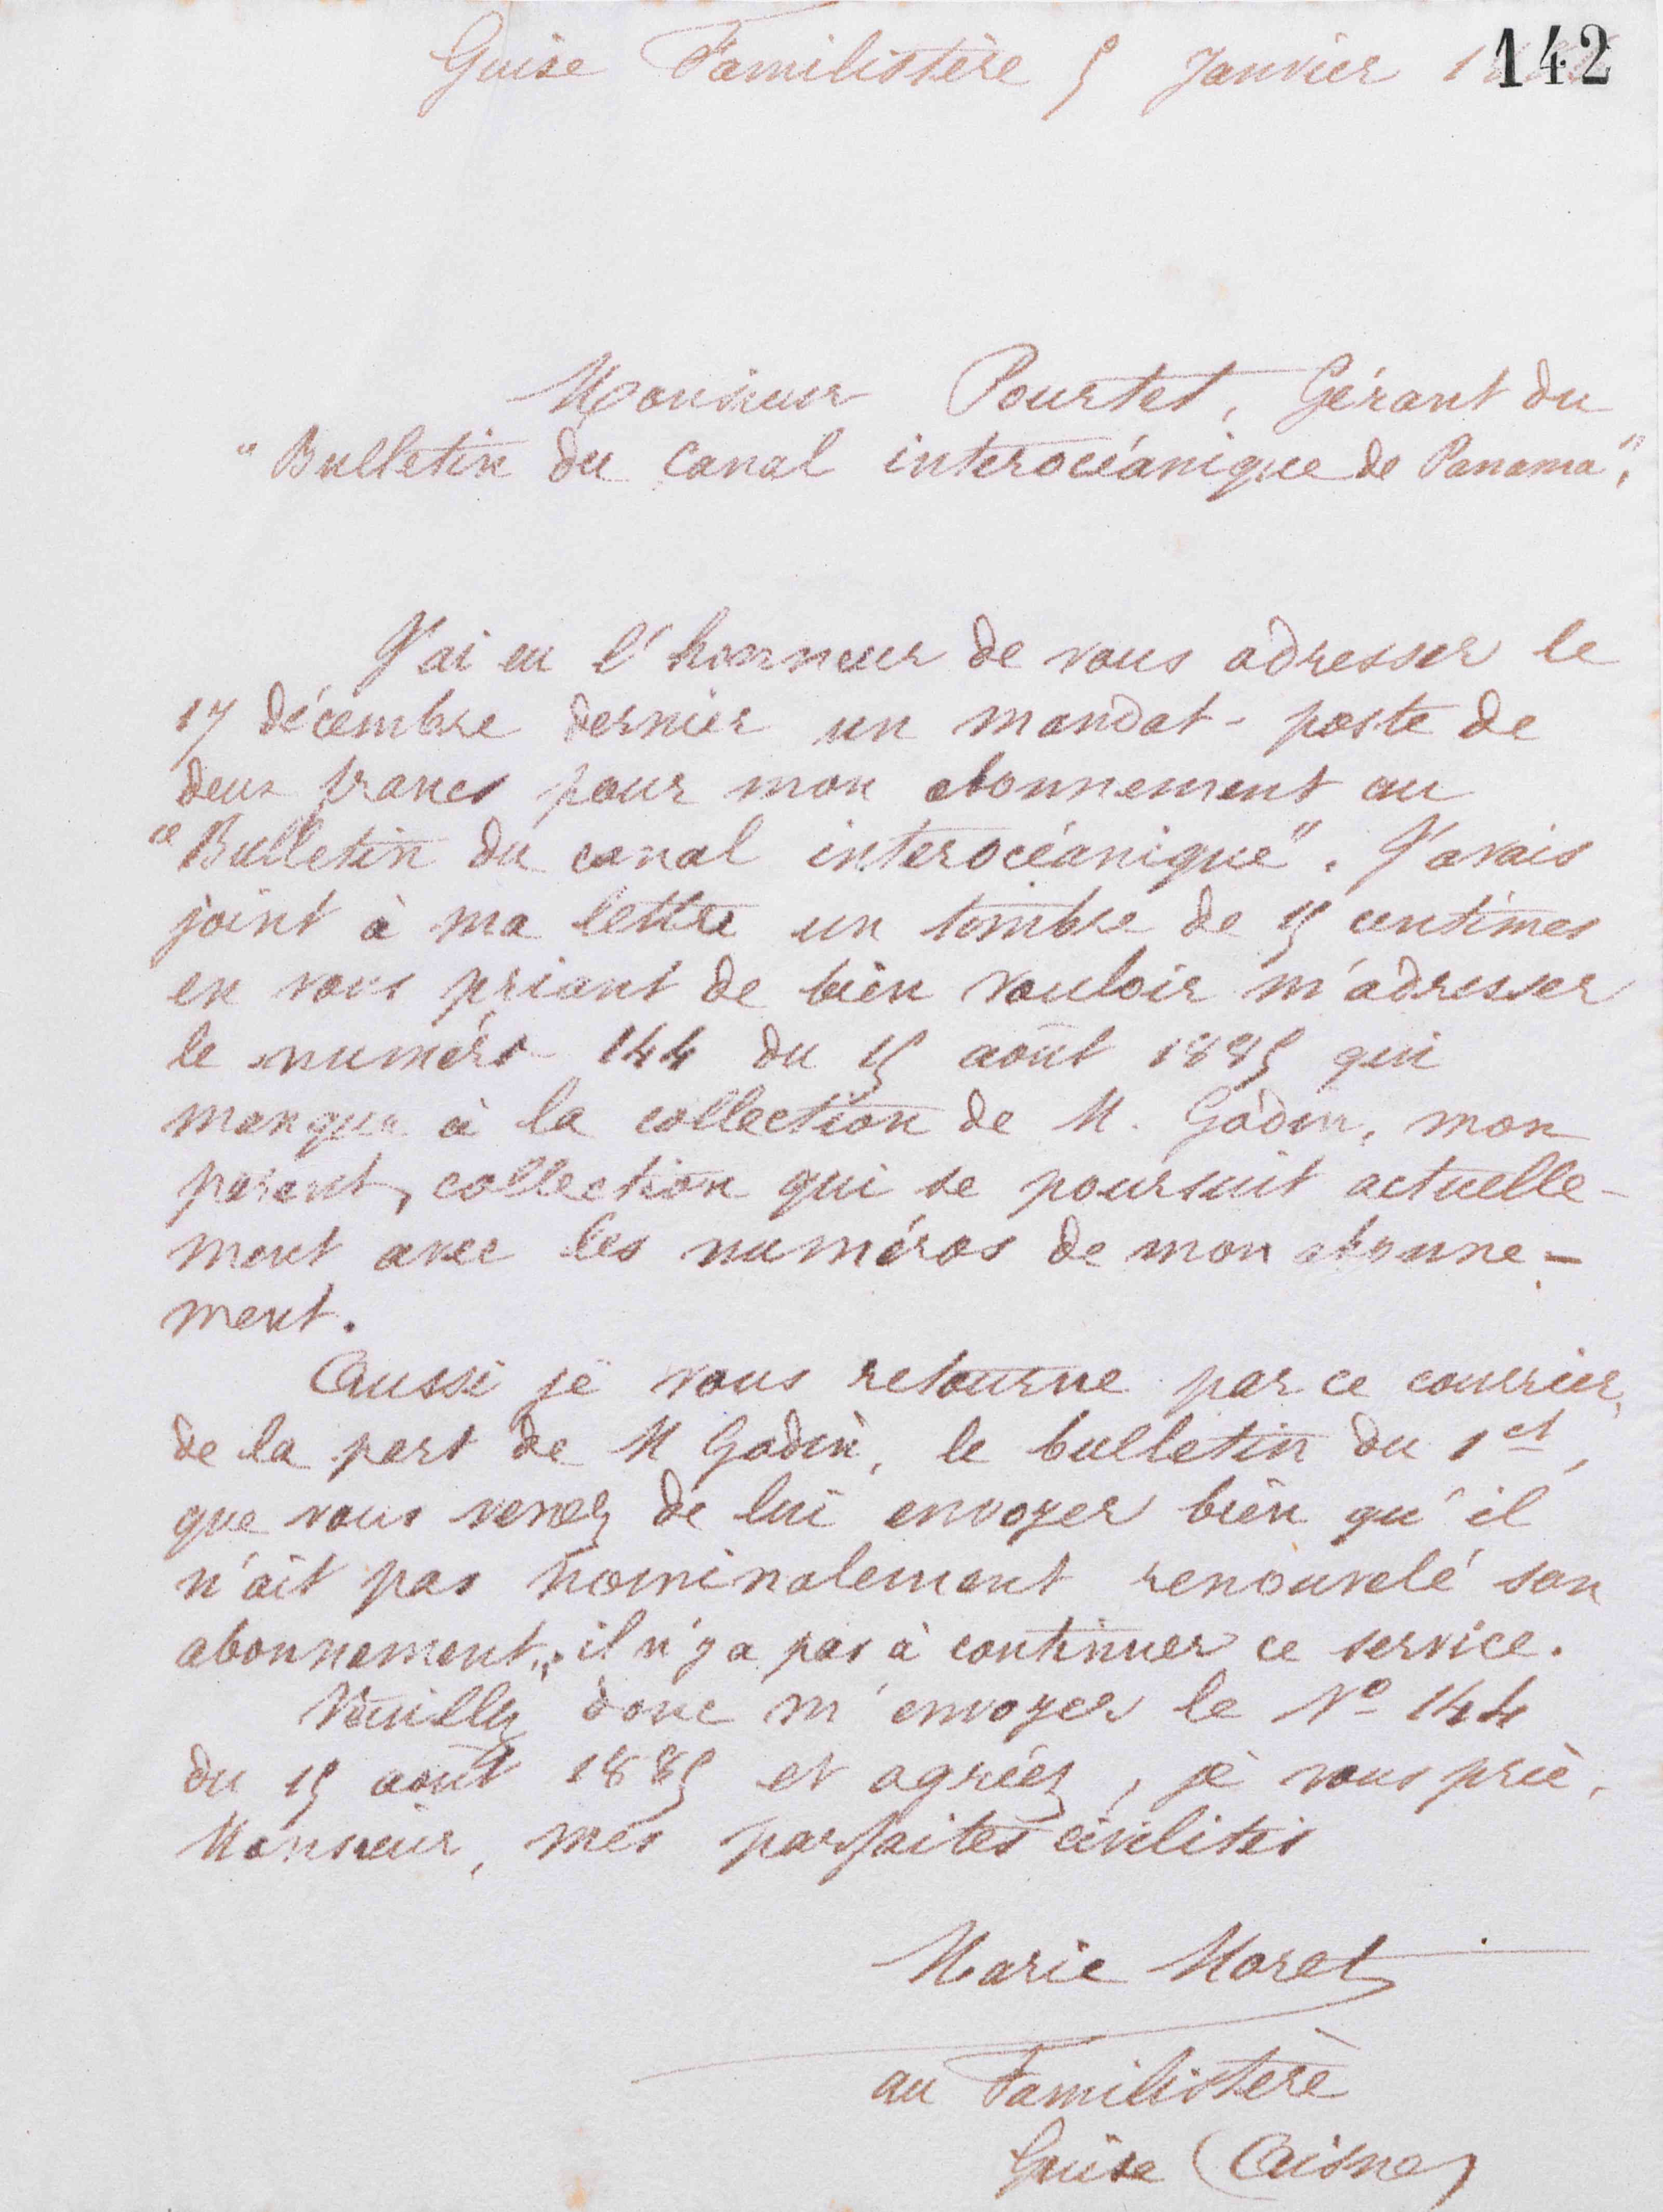 Guise Familistère 5 Janvier 1
142
Monsieur Pourtet, Gérant du
"Bulletin du Canal interocéanique de Panama",
J'ai eu l'honneur de vous adresser le
17 décembre dernier un mandat-poste de
deux francs pour mon abonnement au
"Bulletin du canal interocéanique". J'avais
joint à ma lettre un timbre de 15 centimes
en vous priant de bien vouloir m'adresser
le numéro 144 du 15 août 1885 qui
manque à la collection de M. Godin, mon
parent, collection qui se poursuit actuelle-
ment avec les numéros de mon abonne-
ment.
Aussi je vous retourne par ce courrier,
de la part de M Godin, le bulletin du 1er,
que vous venez de lui envoyer bien qu'il
n'ait pas nominalement renouvelé son
abonnement, il n'y a pas à continuer ce service.
Veuillez donc m'envoyer le No 144
du 15 août 1885 et agréez, je vous prie,
Monsieur, mes parfaites civilités
Marie Moret
au Familistère
Guise (Aisne)